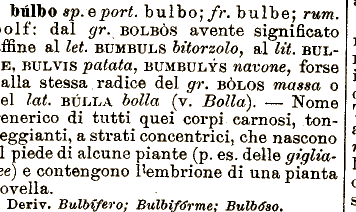 búlbo sp. e port. bulbo; fr. bulbe; rum.
olf: dal gr. BOLBÒS avente significato
ffine al let. BUMBULS bitorzolo, al lit. BUL-
E, BULVIS patata, BUMBULYS navone, forse
alla stessa radice del gr. BÒLOS massa o
el lat. BÚLLA bolla (v. Bolla). — Nome
enerico di tutti quei corpi carnosi, ton-
eggianti, a strati concentrici, che nascono
l piede di alcune piante (p. es. delle giglia-
ee) e contengono l'embrione di una pianta
ovella.
Deriv. Bulbífero; Bulbifórme; Bulbóso.